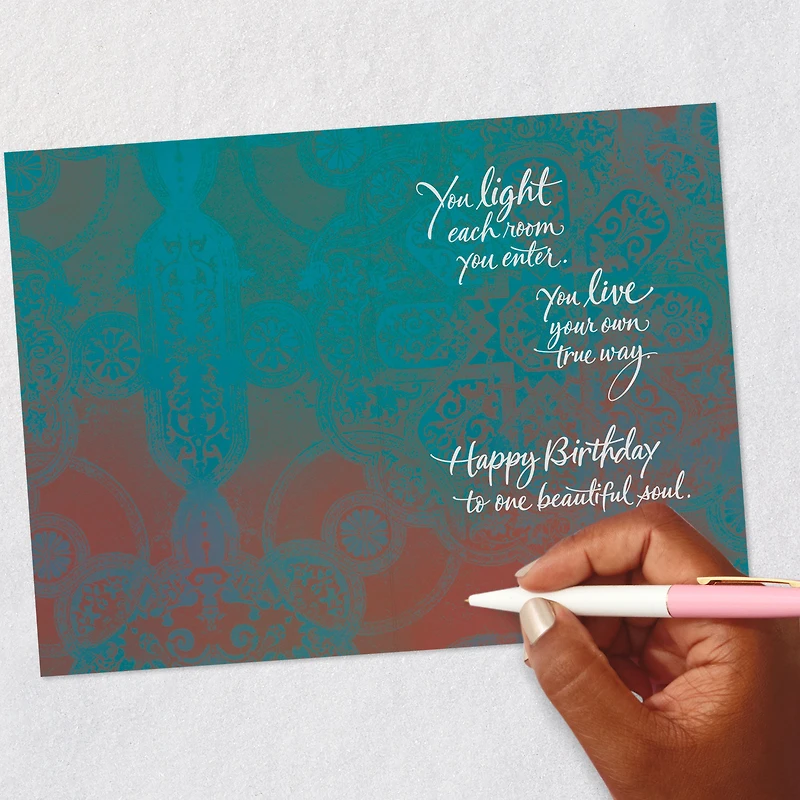 You light
each room
you enter.
You live
your own
true way.
Happy Birthday
to one beautiful soul.